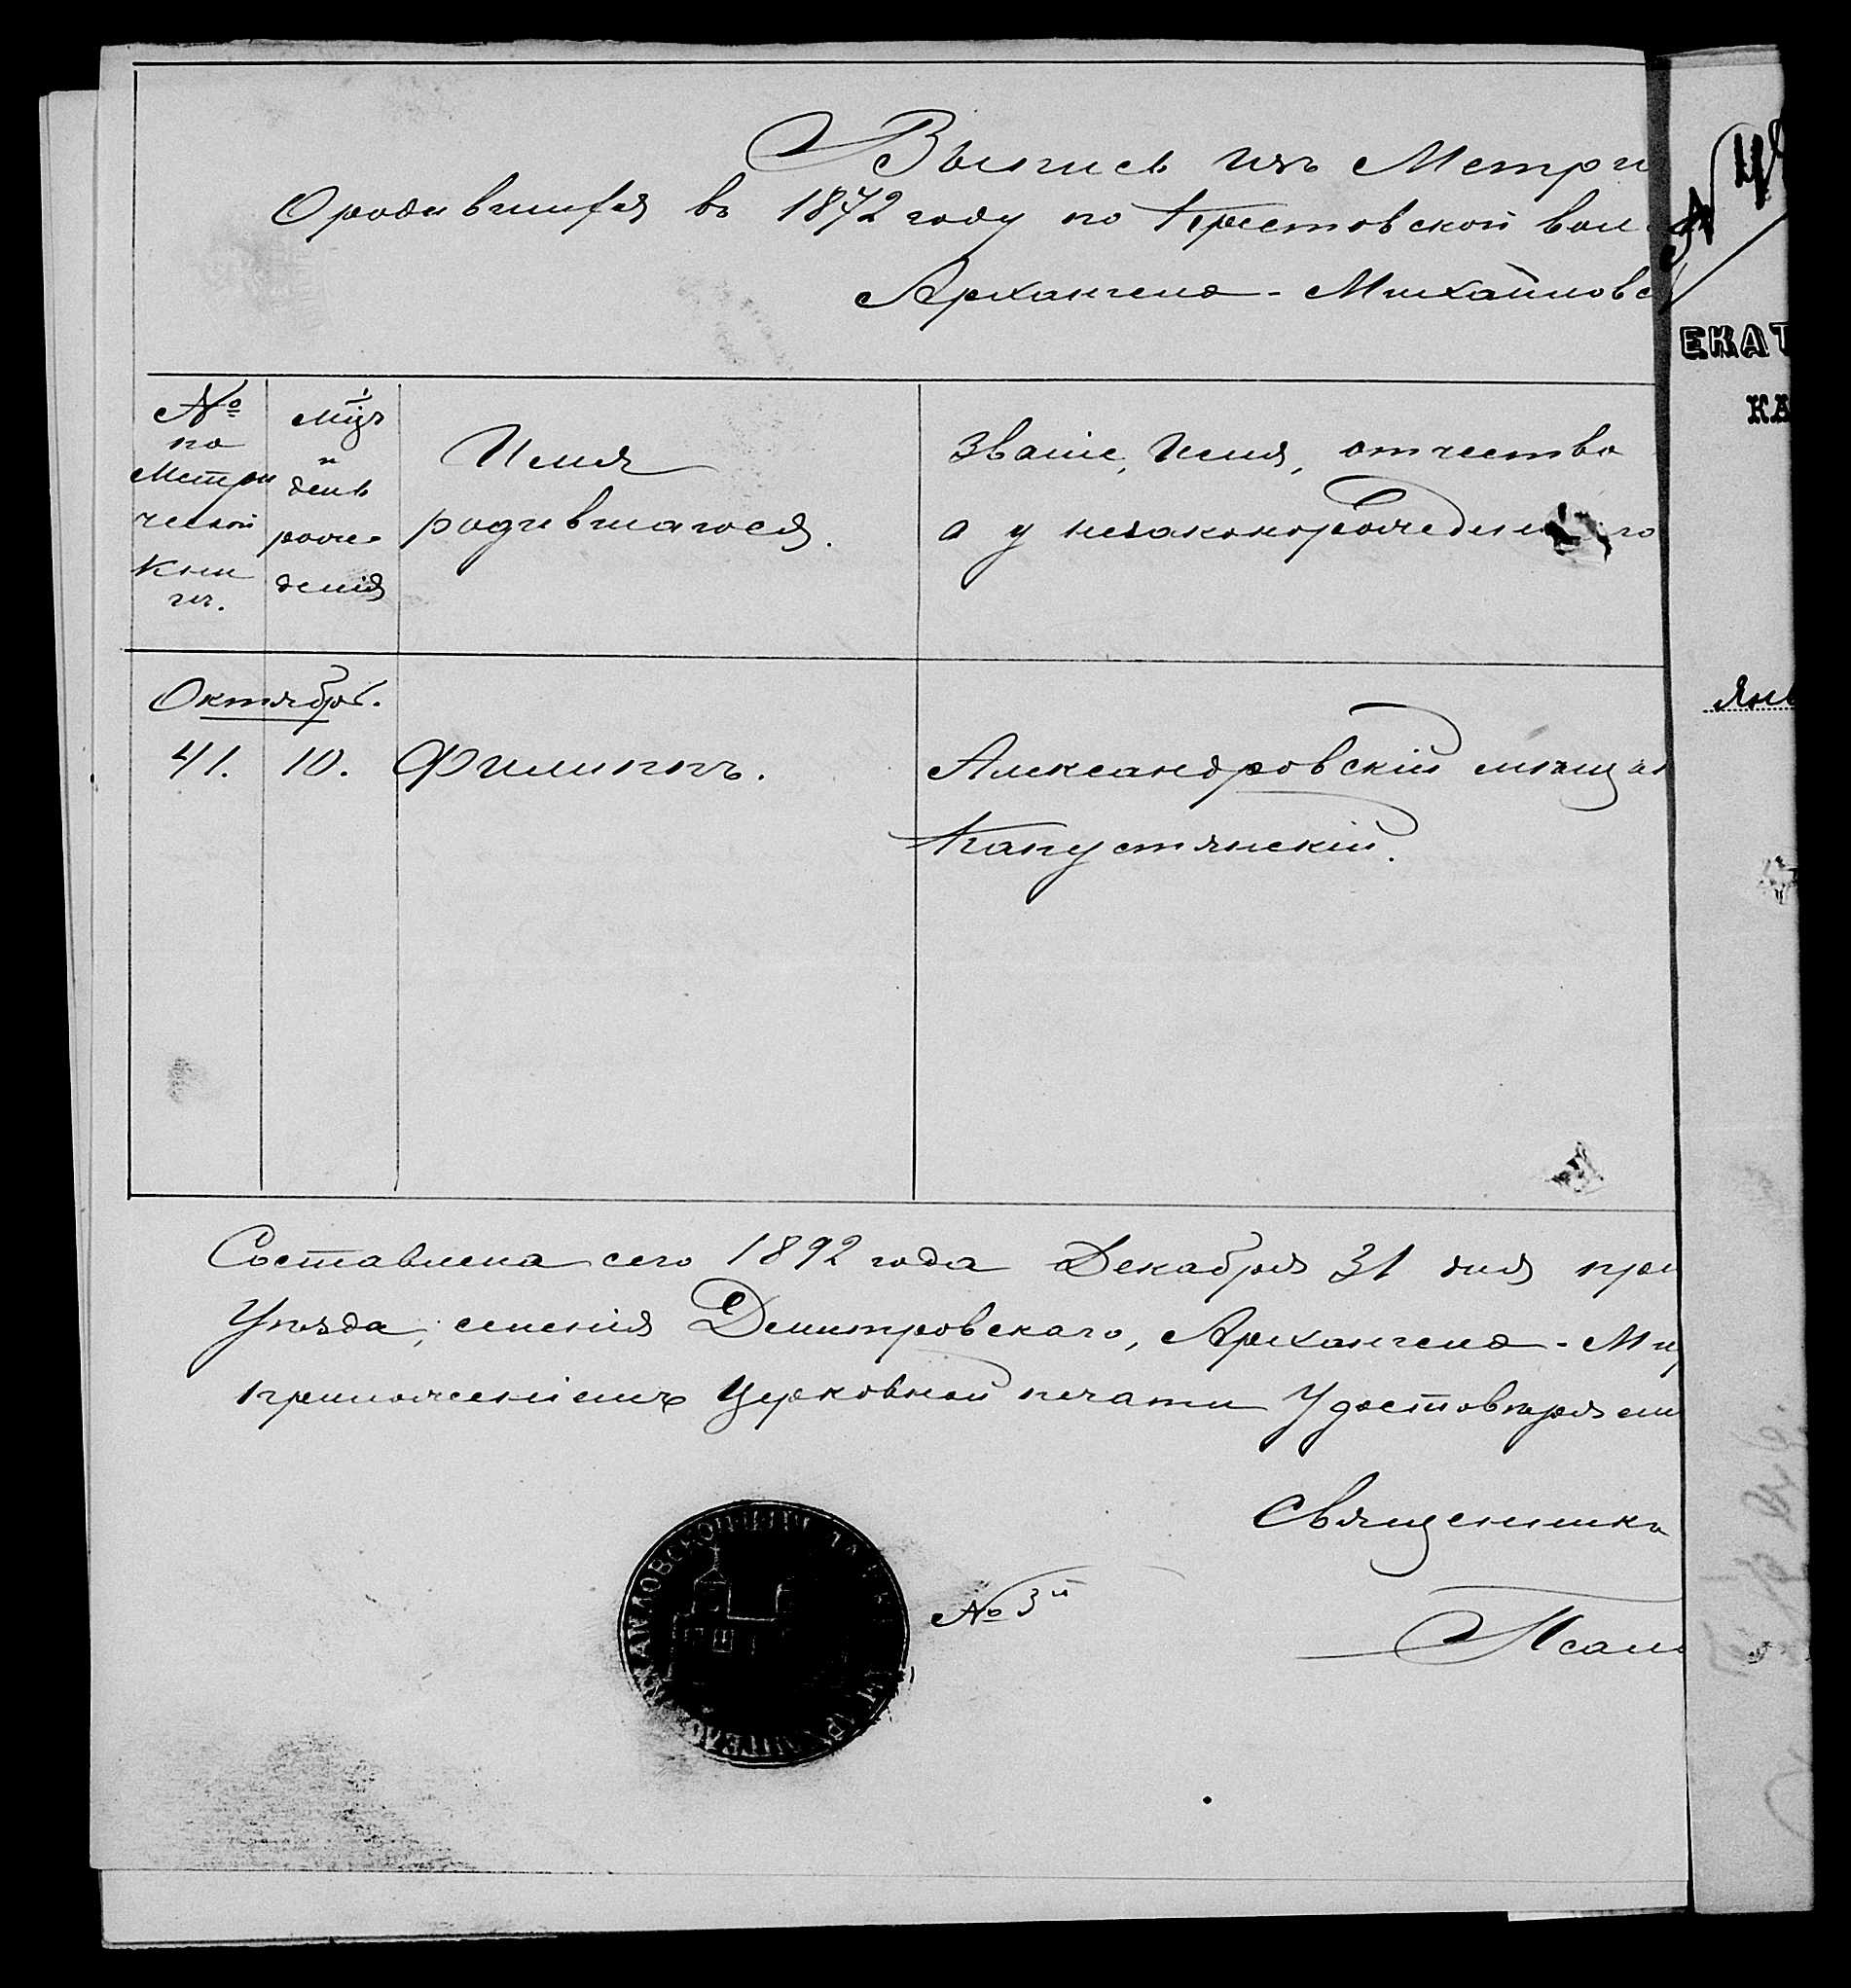 Выпись изъ Метри
О родившихся въ 1872 году по Крестовской вол
Архангело-Михайловс
№ по Метри ческой Кни ги.
Мцъ и день рож дения
Имя родившагося.
Званіе, Имя, отчество
а у незаконорожденнаго
Октябрь.
41. 10. Филиппъ. Александровскій мѣщан
Капустянскій.
Составлена сего 1892 года Декабря 31 дня при
Уѣзда, селенія Дмитровскаго, Архангело-Мих
приложеніемъ Церковной печати Удостовѣряем
Священникъ
№ 3й
Псало
ЕКАТ
КА
Янв